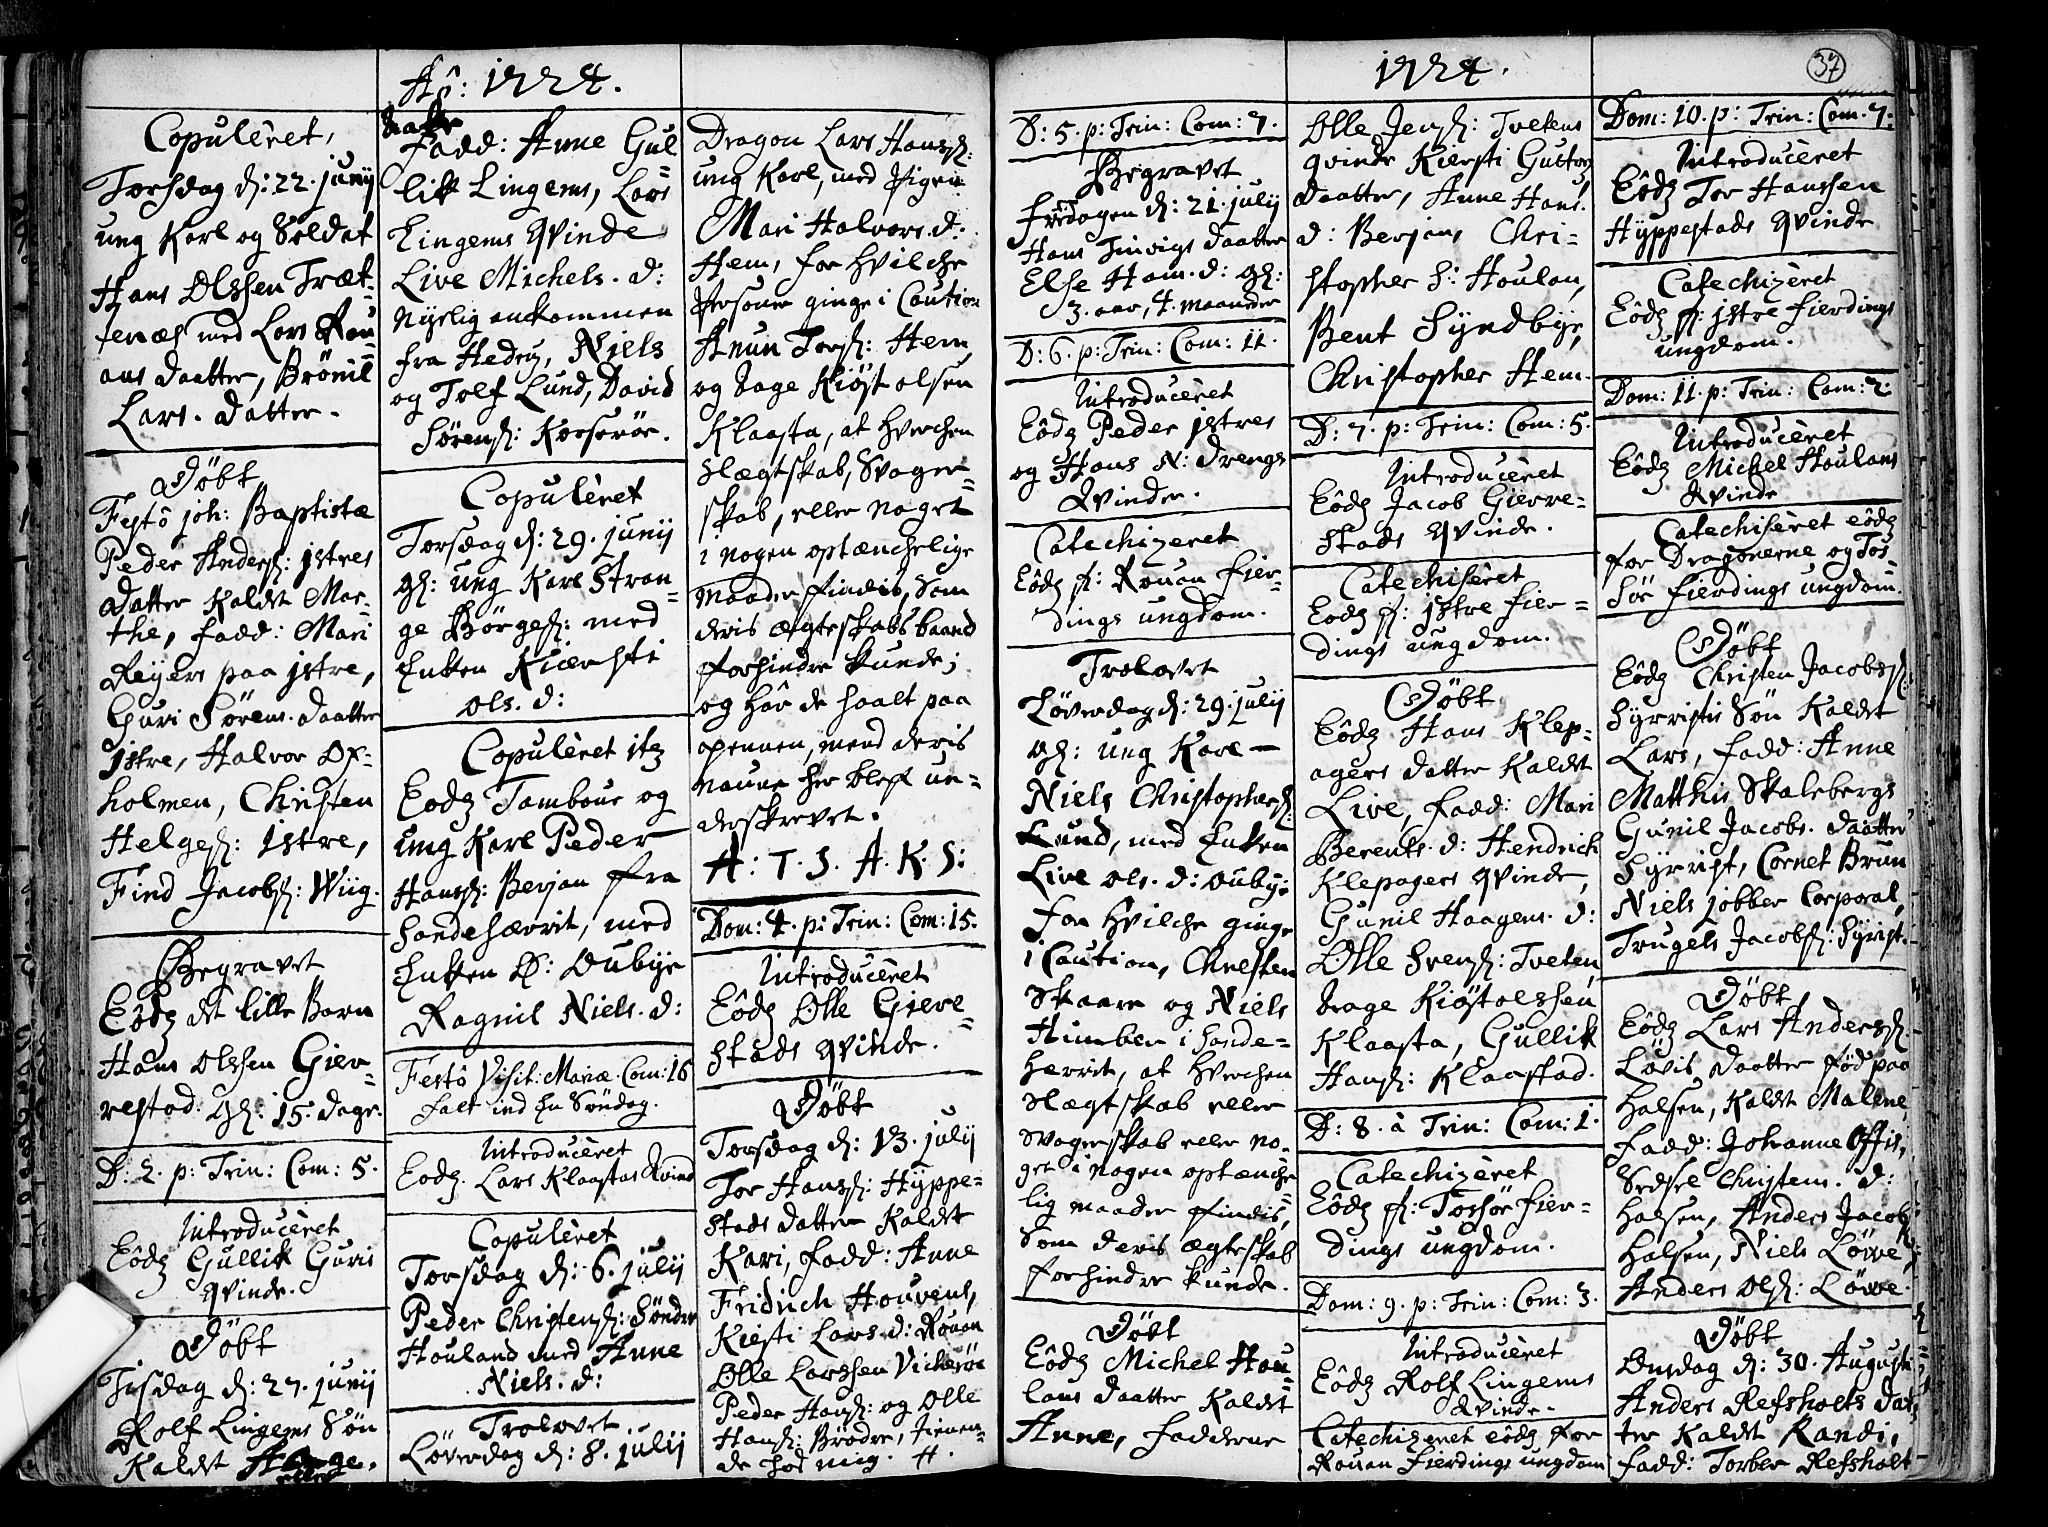 Aô: 1724.
Copulêret,
Torsdag d: 22. junij
ung Karl og Soldat
Hans Olssen Træt-
tenæs med Lars Rou-
ans daatter, Brönil
Lars. datter.
Döbt
Festô joh: Baptistæ
Peder Anders: jstres
datter Kaldt Mar-
the, fadd: Mari
Reijers paa jstre,
Guri Sörens. daatter
jstre, Halvor Ox-
holmen, Christen
Helges: Istre,
Find Jacobs: Wiig.
Begravet
Eôdg det lille Barn
Hans Olssen Gier-
restad. Gl: 15. dage.
D: 2. p: Trin: Com: 5.
Introducêret
Eôdg Gullik Guris
qvinde.
Döbt
Tisdag d: 27. junij
Rolf Lingems Sön
Kaldt
Fadd: Anne Gul-
lik Lingems, Lars
Lingems Qvinde
Live Michels. d:
Nyelig ankommen
fra Hedru, Niels
og Tolf Lund, David
Sörens: Korseröe.
Copulêret
Torsdag d: 29. junij
Gl: ung Karl Stran-
ge Börges: med
Enken Kiersti
ols. d:
Copulêret itz
Eodg Tambour og
ung Karl Peder
Hanss: Berjan fra
Sandehærrit, med
Enken Ö: Oubye
Ragnil Niels. d:
Festô Visit: Mariæ. Com: 16
falt ind en Söndag.
Introducêret
Eodg. Lars Klaastas Qvind
Copulêret
Torsdag d: 6. julij
Peder Christens: Sönder
Houland med Anne
Niels. d:
Trolovet
Löverdag d: 8. julij
Dragon Lars Hanss:
ung Karl, med Pigen
Mari Halvors. d.
Hem, for hvilche
Personer ginge i Caution
Anun Tors: Hem,
og Aage Kiöstolsen
Klaasta, at hverchen
Slægtskab, Svoger-
skab, eller noget
i nogen optænchelige
maader findis, Som
deris ægteskabs baand
forhindre kunde;
og har de haalt paa
pennen, mend deris
naune her blef un-
derskrevet.
A: T. S. A. K. S:
Dom: 4. p: Trin: Com: 15.
Introducêret
Eôdg Olle Gierre-
stads qvinde.
Döbt
Torsdag d: 13. julij
Tor Hanss: Hyppe-
stads datter Kaldt
Kari, fadd: Anne
Fridrich Houvens,
Kiesti Lars. d: Rouan
Olle Larssen Vicheröe
Peder Hanss: og Olle
Hanss: Brödre,
1724.
37
D: 5. p: Trin: Com: 7.
Begravet
Fredagen d: 21. julij
Hans daatter
Else Hans. d: Gl:
3. aar, 4. maaneder
D: 6. p: Trin: Com: 11.
Introducêret
Eôdg Peder jstres
og Hans N: drengs
Qvinder.
Catechizeret
Eôdg f: Rouan fier-
dings ungdom.
Trolovet
Löverdag d: 29. julij
Gl: ung Karl
Niels Christophers:
Lund, med Enken
Live ols. d: oubye
for hvilche ginge
i Caution, Christen
Skaare og Niels
Himber i Sande-
herrit, at hverchen
Slægtskab eller
Svogerskab eller no-
get i nogen optænche
lig maader findis,
Som deris ægteskab
forhindre kunde.
Döbt
Eôdg Michel Hou-
lans daatter Kaldt
Anne, fadderne
Olle Jens: Tvetens
qvinde Kiersti Guttorms
daatter, Anne Hans.
d: Berjans Chri-
stopher S: Houlan,
Bent Syndbye,
Christopher Hem.
D: 7. p: Trin: Com: 5.
Introducêret
Eôdg Jacob Gierre-
stads qvinde.
Catechisêret
Eodg f: jstre fier-
dings ungdom.
Döbt
Eôdg Hans Klep-
agers datter Kaldt
Live, fadd: Mari
Berents. d: Hendrich
Klepagers qvinde,
Gunil Haagens. d:
Olle Svens: Tveten
Aage Kiöstolssen
Klaasta, Gullik
Hanss: Klaastad.
D: 8. à Trin: Com: 1.
Catechizêret
Eôdg f: Tossör fier-
dings ungdom.
Dom: 9. p: Trin: Com: 3.
Introducêret
Eôdg Rolf Lingems
Qvinde.
Catechizeret eôdg for
Rouan fierdings ungdom
Dom: 10. p: Trin: Com. 7.
Introducêret
Eôdg Tor Hanssen
Hyppestads qvinde
Catechizêret
Eôdg f: jstre fierdings
ungdom.
Dom: 11. p: Trin: Com: 2.
Introducêret
Eôdg Michel Houlans
Qvinde
Catechisêret eôdg
for Dragonerne og Tos-
sör fierdings ungdom.
Döbt
Eôdg Christen Jacobs:
Syrristis Sön Kaldt
Lars, fadd: Anne
Matthis Skalebergs
Gunil Jacobs. daatter
Syrrist, Cornet Brun
Niels jobber Corporal,
Trugels Jacobs: Syrist.
Döbt
Eôdg Lars Anderss:
Lövis daatter fød paa
Halsen, kaldt Malene,
fadd: Johanne Offis,
Sedsel Christens. d:
Halsen, Anders Jacobs:
Halsen, Niels Löwe,
Anders Ols: Löwe.
Döbt
Onsdag d: 30. Augusti
Anders Refsholts dat-
ter Kaldt Randi,
fadd: Torber Refsholt